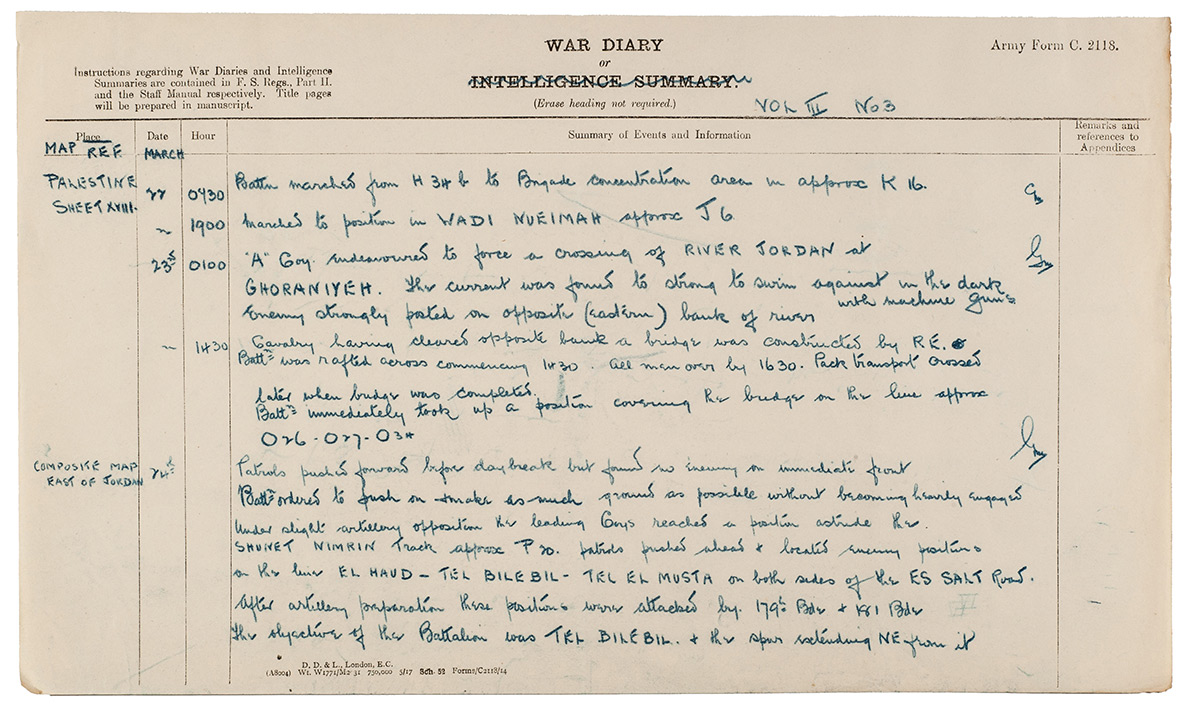 WAR DIARY
or
INTELLIGENCE SUMMARY.
(Erase heading not required.)
Army Form C. 2118.
Instructions regarding War Diaries and Intelligence
Summaries are contained in F. S. Regs., Part II.
and the Staff Manual respectively. Title pages
will be prepared in manuscript.
VOL III No 3
Place Date Hour Summary of Events and Information Remarks and references to Appendices
MAP REF. MARCH
PALESTINE SHEET XVIII. 22 0930 Battn marched from H 34 b to Brigade concentration area in approx K 16.
" 1900 Marched to position in WADI NUEIMAH approx J 6
23rd 0100 "A" Coy. endeavoured to force a crossing of RIVER JORDAN at
GHORANIYEH. The current was found to strong to swim against in the dark
Enemy strongly posted on opposite (eastern) bank of river with machine Guns
" 1430 Cavalry having cleared opposite bank a bridge was constructed by R.E.
Battn was rafted across commencing 1430. All men over by 1630. Pack transport crossed
later when bridge was completed.
Battn immediately took up a position covering the bridge on the line approx
O26-O27-O34
COMPOSITE MAP EAST OF JORDAN 24th Patrols pushed forward before daybreak but found no enemy on immediate front
Battn ordered to push on + make as much ground as possible without becoming heavily engaged
Under slight artillery opposition the leading Coys reached a position astride the.
SHUNET NIMRIN Track approx P 20. patrols pushed ahead + located enemy positions
on the line EL HAUD - TEL BILEBIL - TEL EL MUSTA on both sides of the ES SALT Road.
After artillery preparation these positions were attacked by. 179th Bde + 181 Bde
The objective of the Battalion was TEL BILEBIL. + the spur extending NE from it
D. D. & L., London, E.C.
(A8004) Wt. W1771/M2 31 750,000 5/17 Sch. 52 Forms/C2118/14